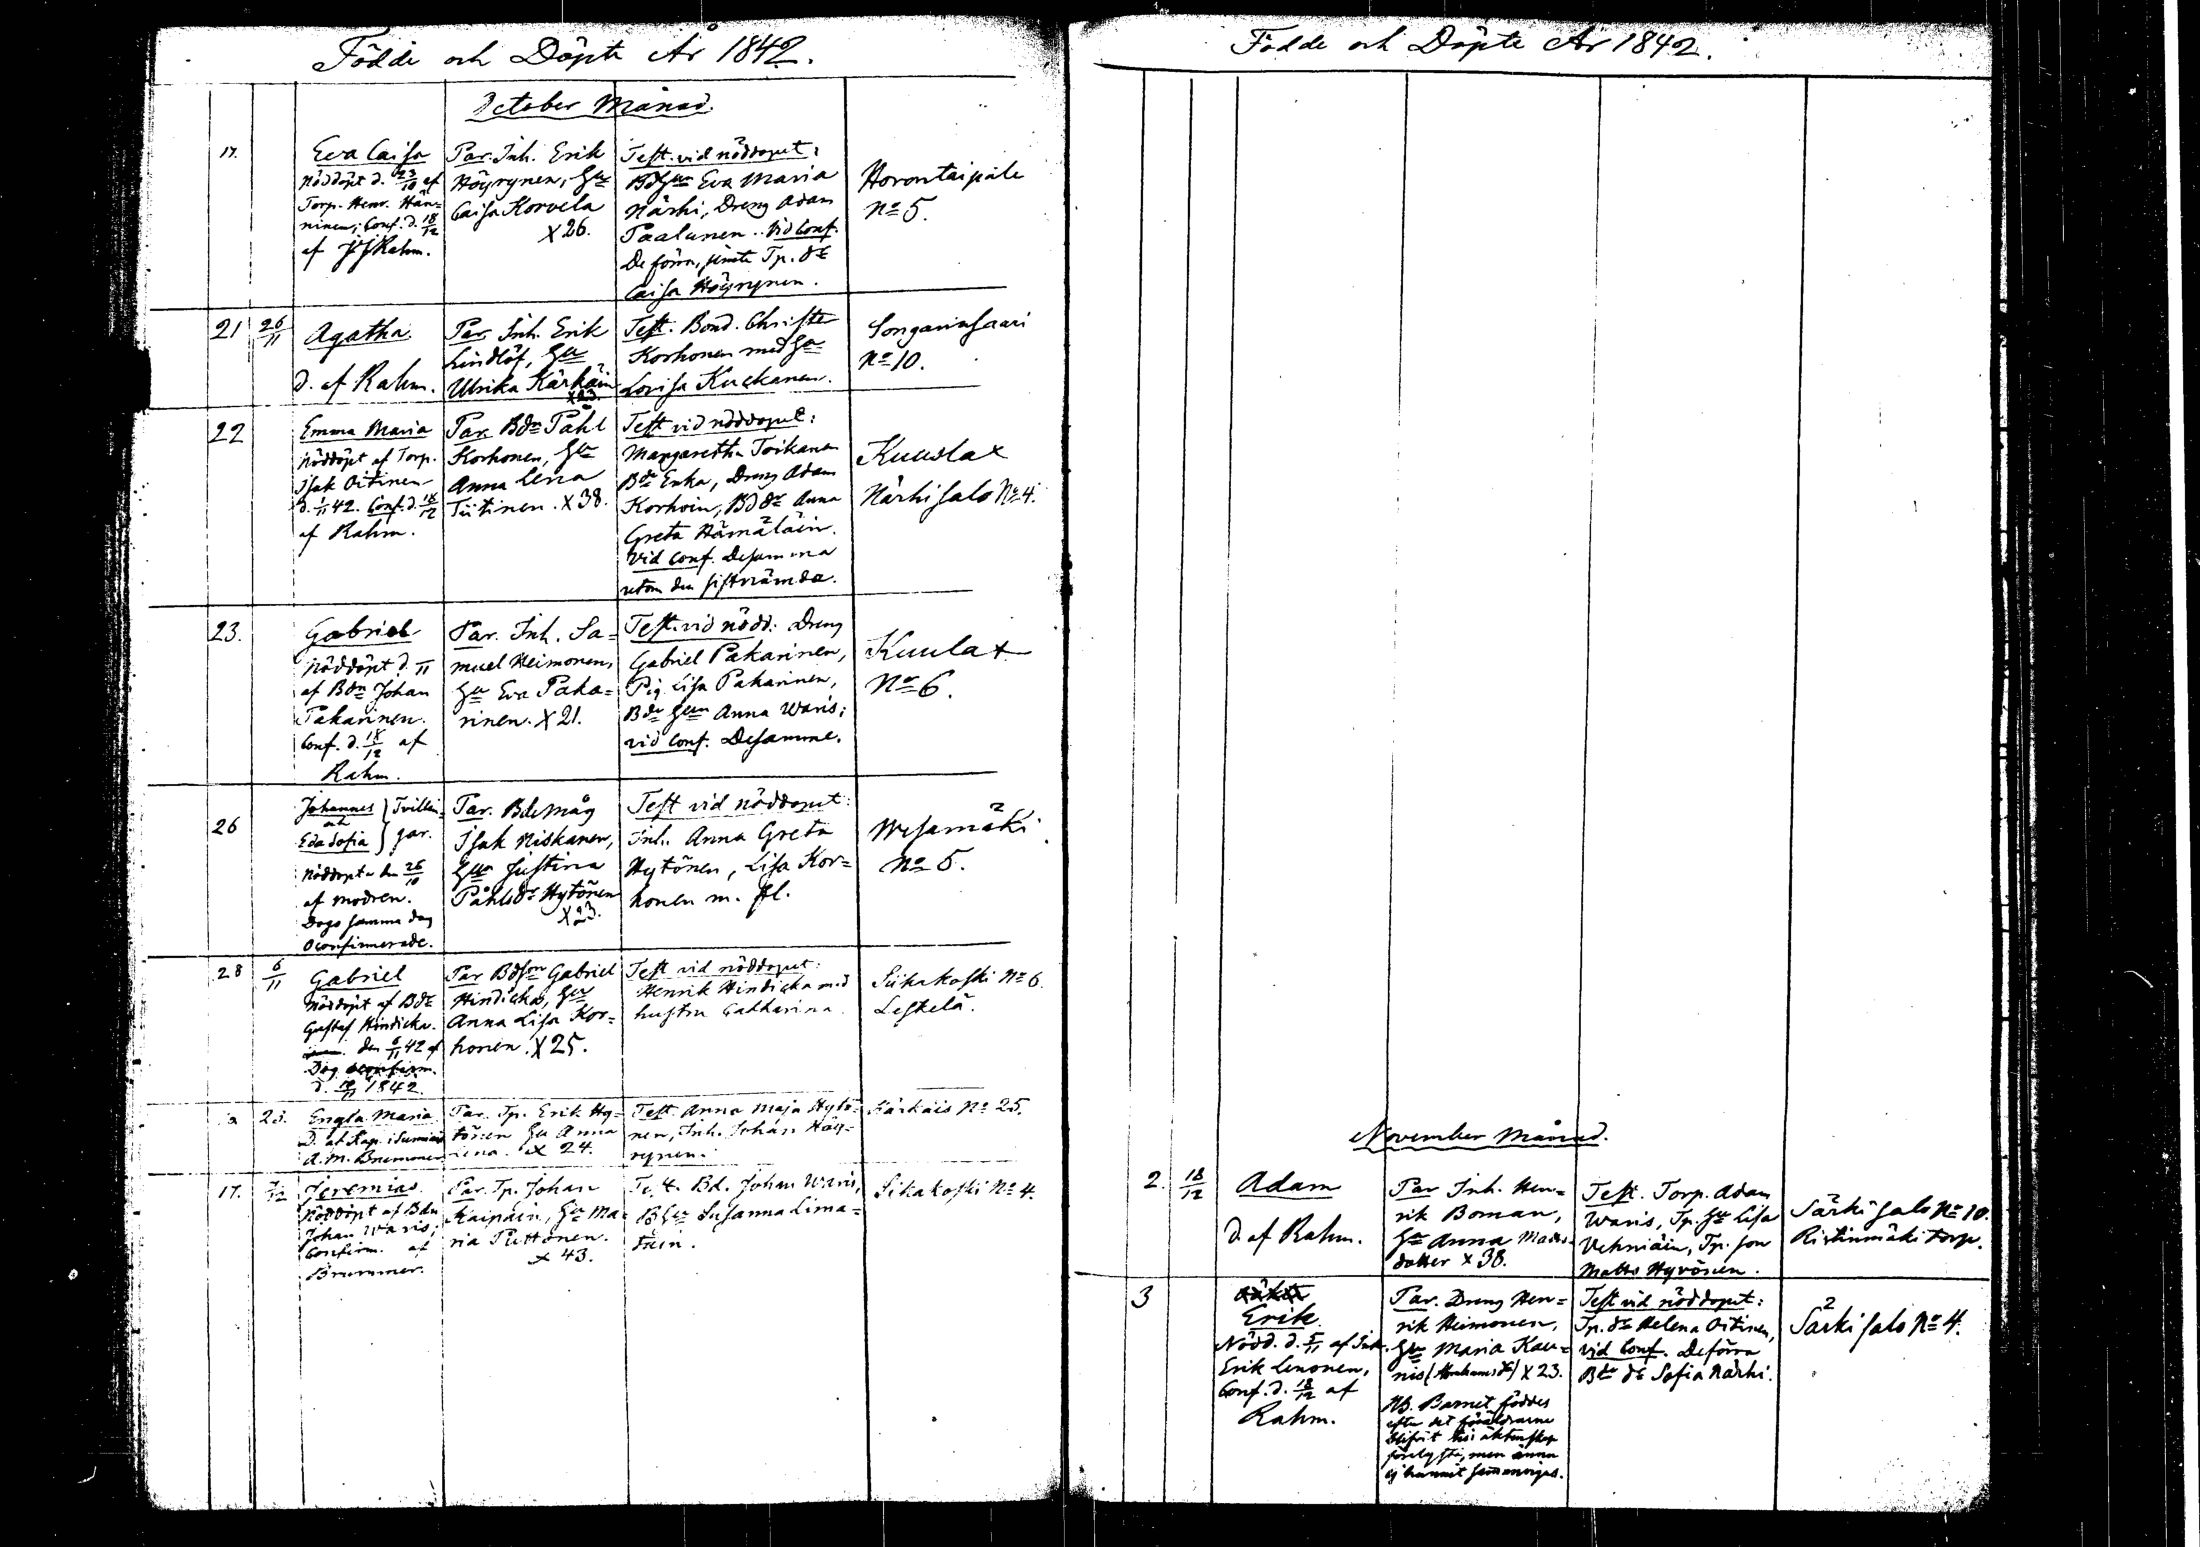 Födde och Döpte År 1842.
October Månad.
17.
Eva Caisa
Nöddöpt d. 23/10 af
Torp. Henr. Hän=
ninen; Conf. d. 18/12
af JJRahm.
Par. Inh. Erik
Höyrynen, Hu
Caisa Korvela
X 26.
Test. vid nöddoput:
Eva Maria
Närhi, Dreng Adam
Paalanen. Vid Conf.
De förra, jemte Tp. dr
Caisa Höyrynen.
Horontaipale
No 5.
21 26/11
Agatha
d. af Rahm.
Par Inh. Erik
Lindlöf, Hu
Ulrika Kärkäin
X 23.
Test. Bond. Christer
Korhonen med Hu
Lovisa Kuckanen.
Songarinsaari
No 10.
22
Emma Maria
Nöddöpt af Torp.
Isak Oitinen
d. 1/11 42. Conf. d. 18/12
af Rahm.
Par. Bdn Påhl
Korhonen, Hu
Anna Lena
Tiitinen. X 38.
Test vid nöddoput:
Margaretha Toikanen
Bde Enka, Dreng Adam
Korhoin, Bd dr Anna
Greta Hämäläin.
Vid Conf. Desamma
utom den sistnämda.
Kuusla x
Närhisalo No 4.
23.
Gabriel
Nöddöpt d. /11
af Bdn Johan
Pakarinen.
Conf. d. 18/12 af
Rahm.
Par. Inh. Sa=
muel Heimonen,
Hu Eva Paka=
rinen. X 21.
Test. vid nödd: Dreng
Gabriel Pakarinen,
Pig. Lisa Pakarinen,
Bde Hun Anna Waris;
vid Conf. Desamme.
Kuula x
No 6.
26
Johannes } Tvillin=
och
Eda Sofia } gar.
Nöddöpte den 26/10
af modren.
Dogo samma dag
Oconfirmerade.
Par. Bdemåg
Isak Niskanen,
Hu Justina
Påhlsdr Hytönen
X 23.
Test vid nöddoput:
Inh. Anna Greta
Hytönen, Lisa Kor=
honen m. fl.
Wesamäki
No 5.
28 6/11
Gabriel
Nöddöpt af Bde
Gustaf Hindicka.
den 6/11 42 af
Dog
d. 1842.
Par Bdson Gabriel
Hindicka, Hu
Anna Lisa Kor=
honen. X 25.
Test vid nöddoput:
Henrik Hindicka med
hustru Catharina.
Siikakoski No 6.
Leskelä.
2 23.
Engla Maria
D. af Kap. i Sumiais
A. M. Brummer
Par. Tp. Erik Hy=
tönen Hu Anna
Lena. X 24.
Test. Anna Maja Hytö=
nen, Inh. Johan Höy=
rynen.
Kärkäis No 25.
17. /12
Jeremias
Nöddöpt af Bdn
Johan Waris;
Confirm. af
Brummer.
Par. Tp. Johan
Kaipain, Hu Ma=
ria Puttonen.
X 43.
Test. Bd. Johan Waris,
BHu Susanna Lima=
tain.
Sikakoski No 4.
Födde och Döpte År 1842.
November Månad.
2. 18/12
Adam
d. af Rahm.
Par Inh. Hen=
rik Boman,
Hu Anna Mads=
dotter X 38.
Test. Torp. Adam
Waris, Tp. Hu Lisa
Vehniäin, Tp. son
Matts Hyvönen.
Särkisalo No 10.
Ristinmäki torp.
3
Erik
Nödd. d. 5/11 af Inh.
Erik Lenonen,
Conf. d. 18/12 af
Rahm.
Par. Dreng Hen=
rik Heimonen,
Hu Maria Kau=
nis (Abrahamsdr) X 23.
NB. Barnet föddes
efter det föräldrarne
blifvit till äktenskap
förelyste, men ännu
ej hunnit sammanvigas.
Test vid nöddoput:
Tp. dr Helena Oitinen,
vid Conf. De förra
Bde dr Sofia Närhi.
Särkisalo No 4.